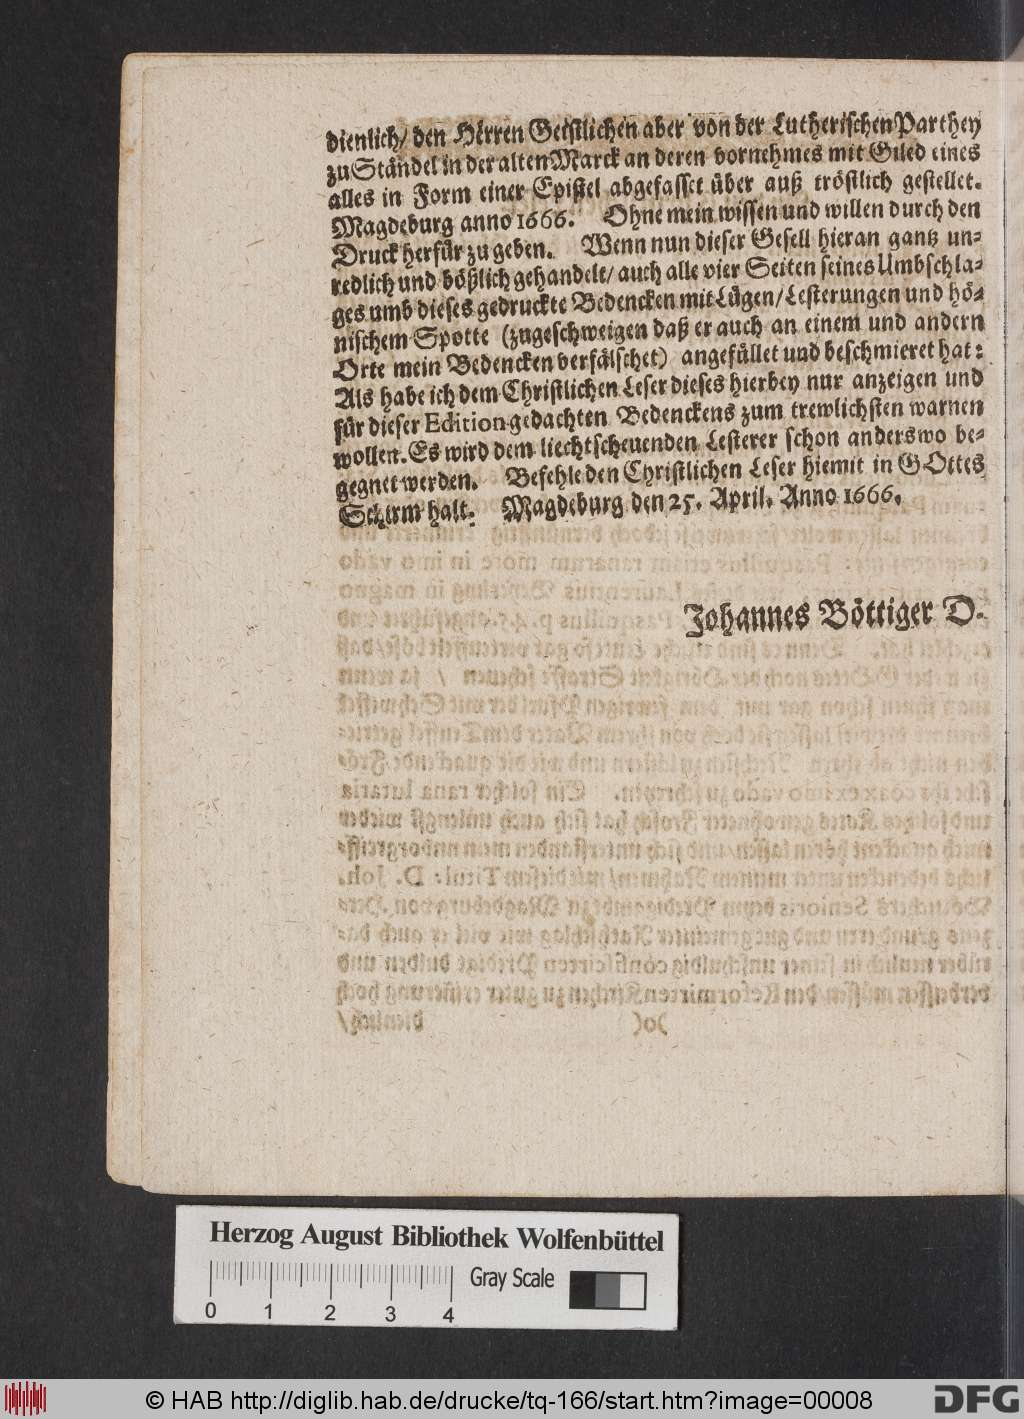 dienlich/ den Herren Geistlichen aber von der Lutherischen Parthey
zu Ständel in der alten Marck an deren vornehmes mit Glied eines
alles in Form einer Epistel abgefasset über auß tröstlich gestellet.
Magdeburg anno 1666. Ohne mein wissen und willen durch den
Druck herfür zu geben. Wenn nun dieser Gesell hieran gantz un-
redlich und bößlich gehandelt/ auch alle vier Seiten seines Umbschla-
ges umb dieses gedruckte Bedencken mit Lügen/ Lesterungen und hö-
nischem Spotte (zugeschweigen daß er auch an einem und andern
Orte mein Bedencken verfälschet) angefüllet und beschmieret hat:
Als habe ich dem Christlichen Leser dieses hierbey nur anzeigen und
für dieser Edition gedachten Bedenckens zum trewlichsten warnen
wollen. Es wird dem liechtscheuenden Lesterer schon anderswo be-
gegnet werden. Befehle den Christlichen Leser hiemit in GOttes
Schirm halt. Magdeburg den 25. April. Anno 1666.
Johannes Böttiger D.
Herzog August Bibliothek Wolfenbüttel
Gray Scale
0 1 2 3 4
© HAB http://diglib.hab.de/drucke/tq-166/start.htm?image=00008
DFG